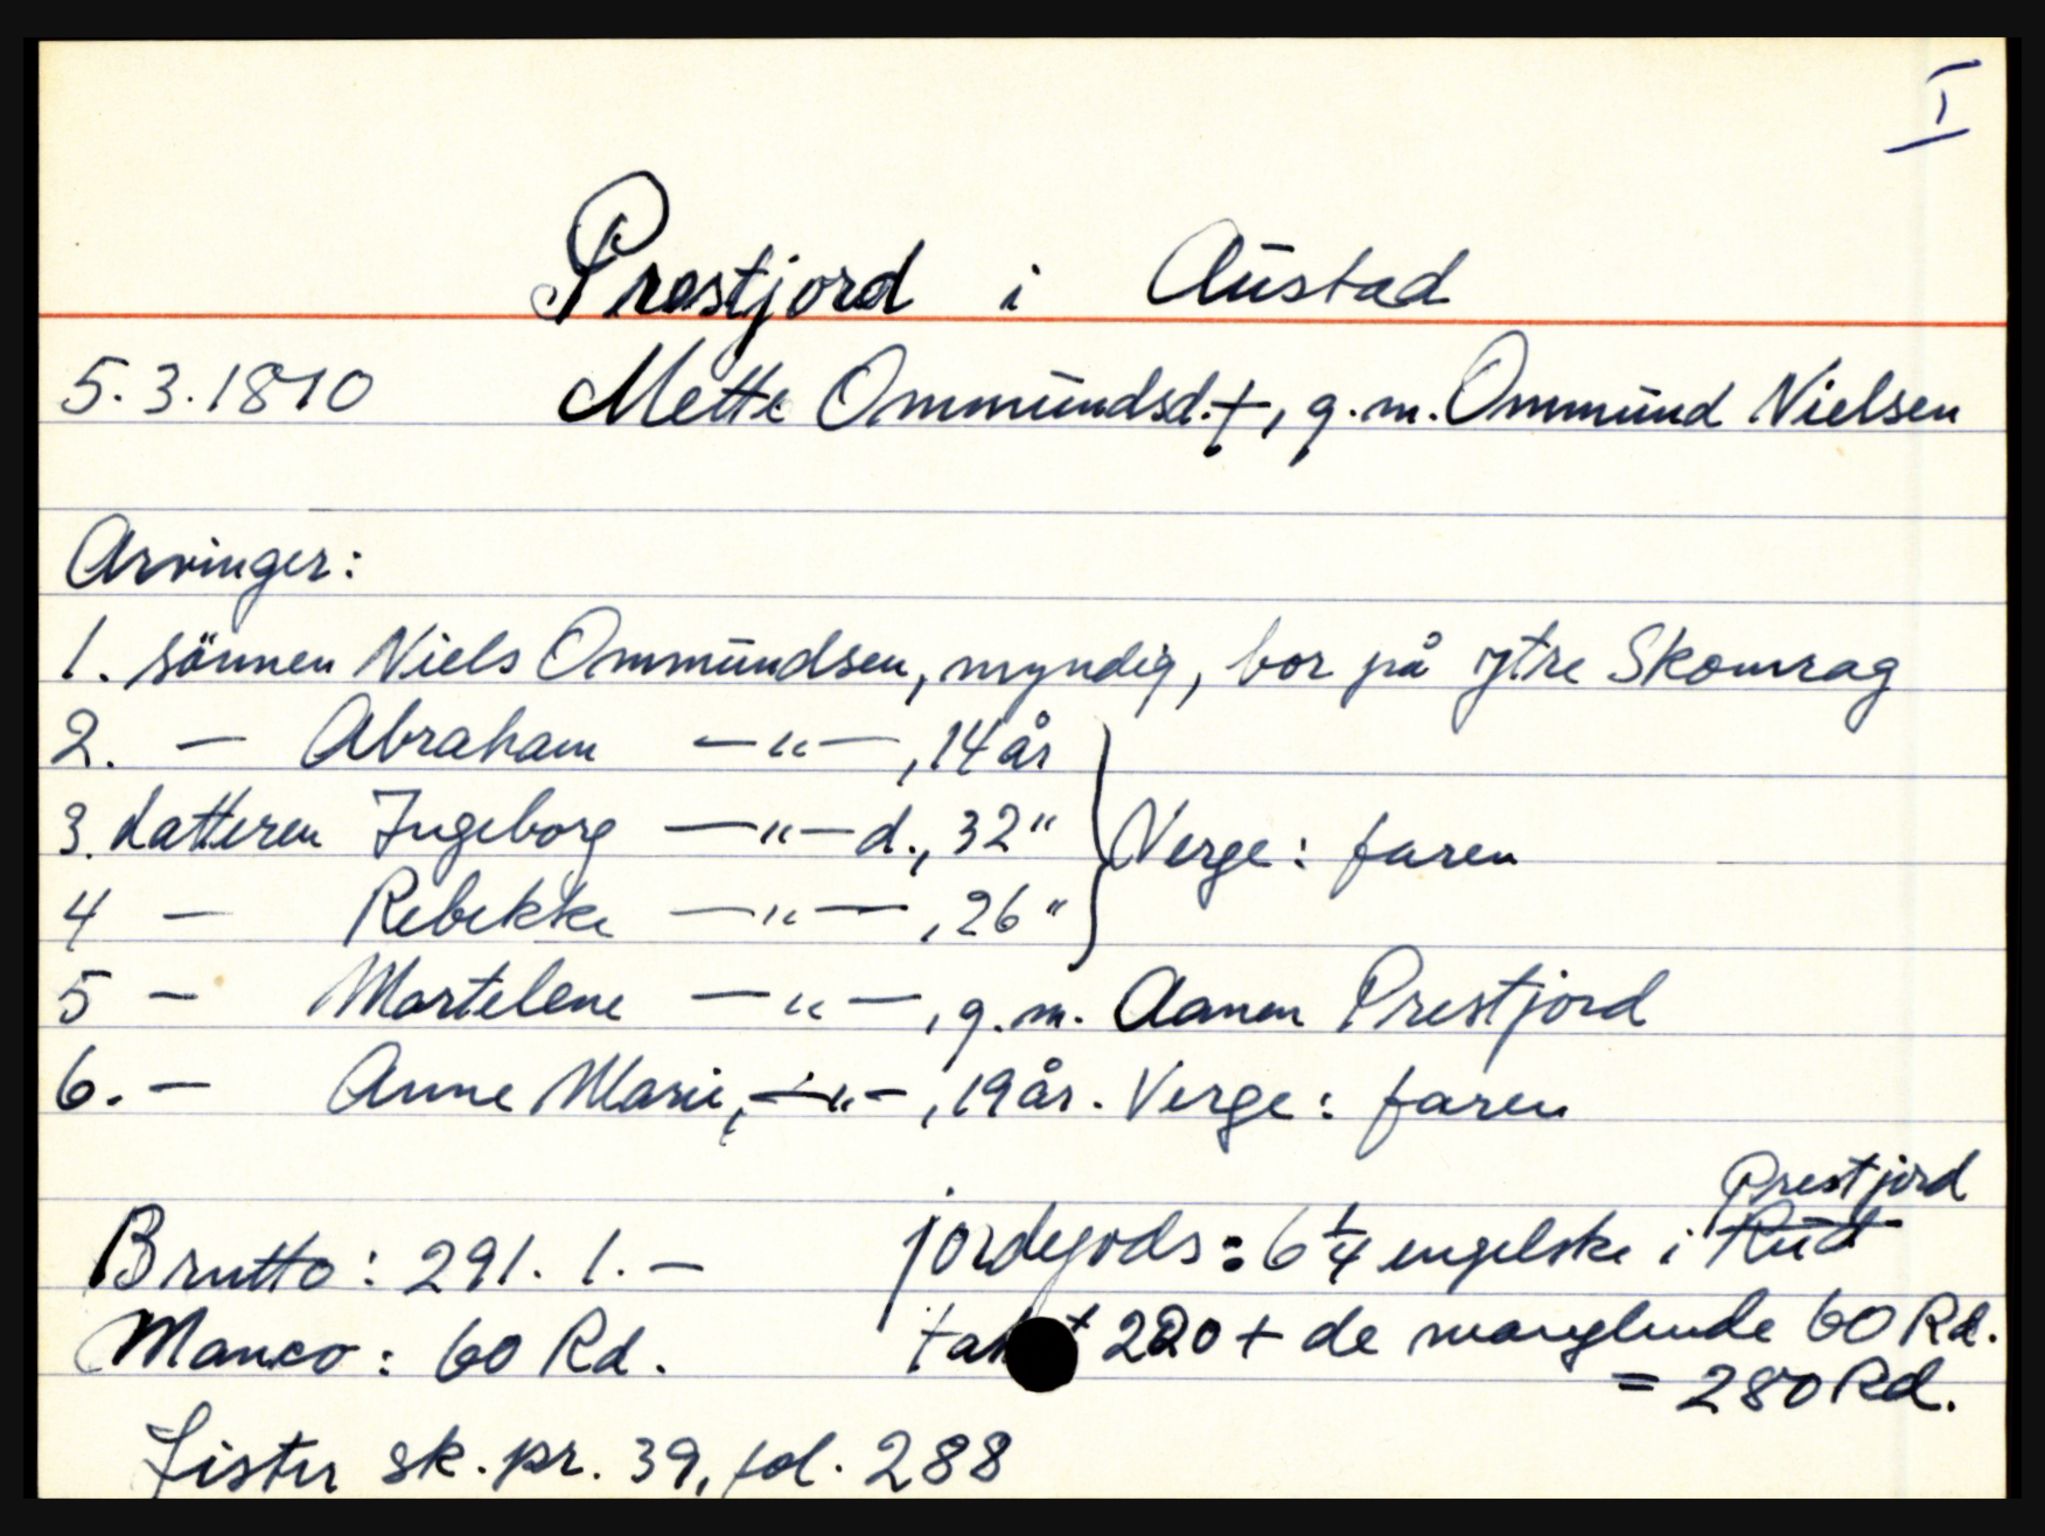 I
Prestjord i Austad
5.3.1810 Mette Ommundsd. †, g.m. Ommund Nielsen
Arvinger:
1. sönnen Niels Ommundsen, myndig, bor på ytre Skomrag
2. — Abraham —"—, 14 år
3. datteren Ingeborg —"— d., 32 " } Verge: faren
4 — Rebekke —"—, 26 "
5 — Martelene —"—, g.m. Aanen Prestjord
6. — Anne Marie, —"—, 19 år. Verge: faren
Prestjord
Brutto: 291. 1. — jordegods: 6 1/4 engelske i
Manco: 60 Rd. takst 220 + de manglende 60 Rd.
= 280 Rd.
Lister sk. pr. 39, fol. 288